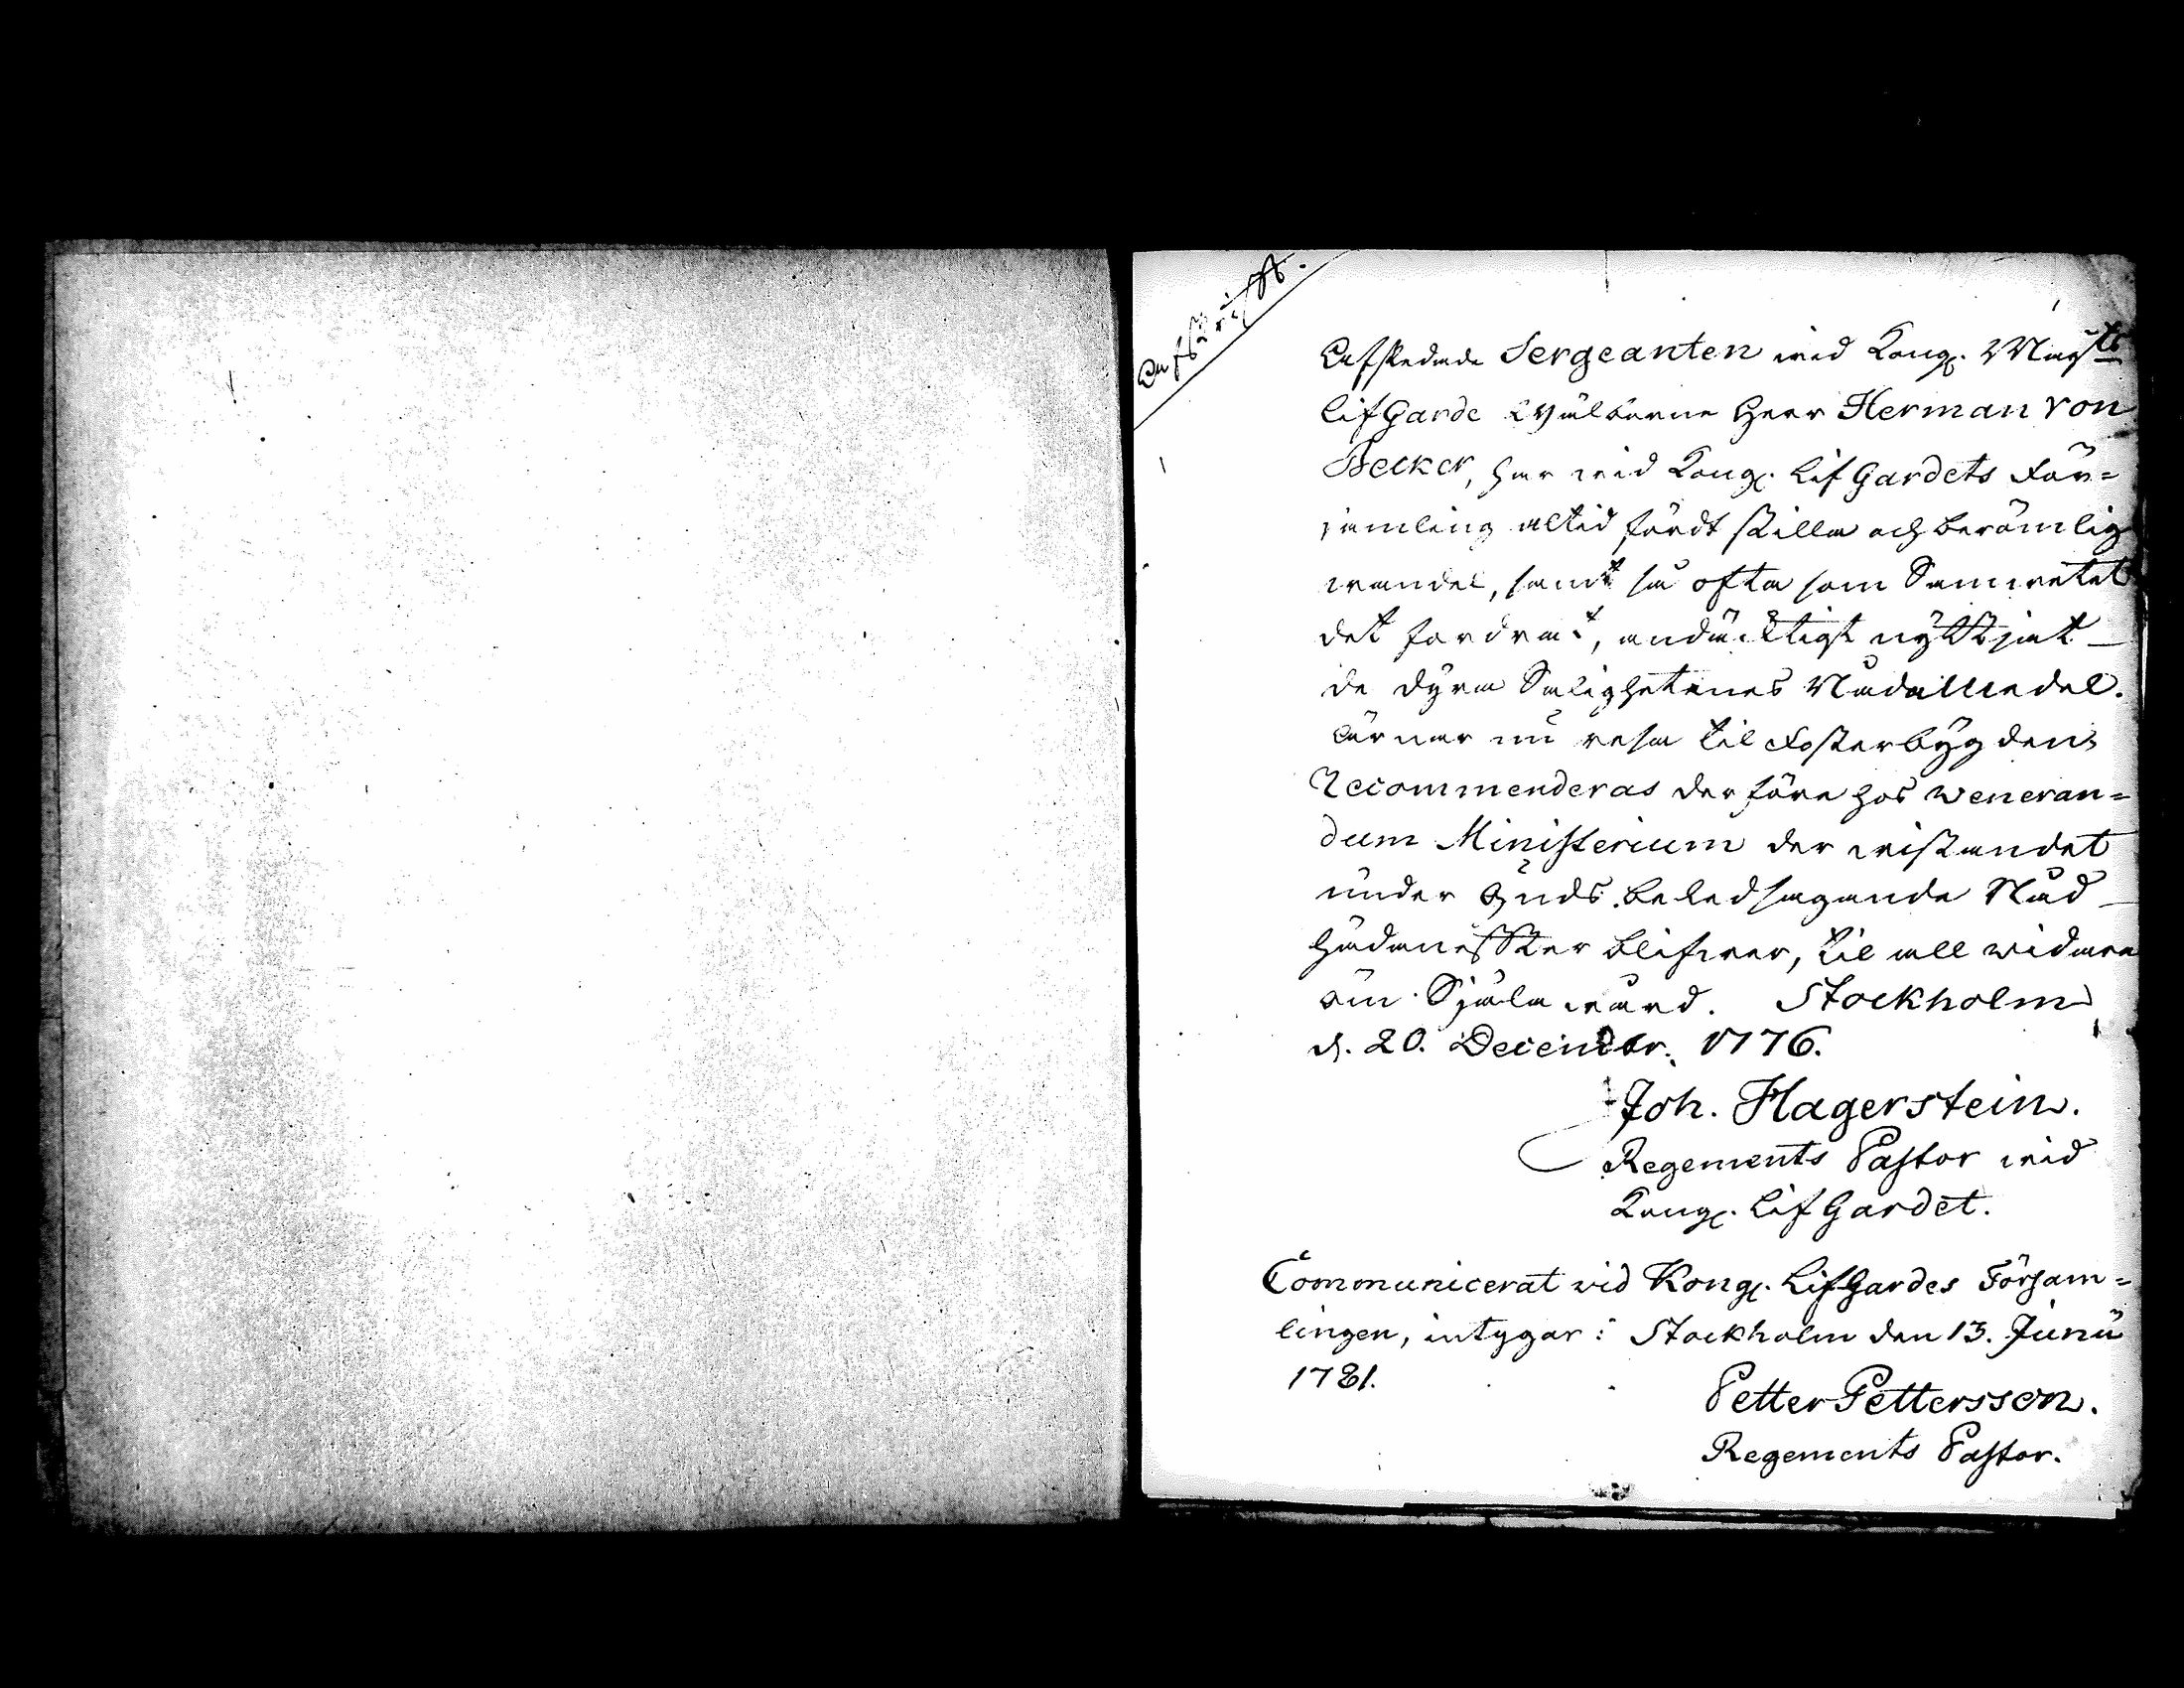 Afskrifft.
Afskedade Sergeanten wid Kongl. Maij:ts
LifGarde Wälborne Herr Herman von
Becker, har wid Kongl. LifGardets För=
samling altid fördt stilla och berömlig
wandel, samt så ofta som Samwetet
det fordrat, andäcktigt nyttjat
de dyra Salighetenes Nådamedel.
Ärnar nu resa til Fosterbygden,
Recommenderas derföre hos weneran=
dum Ministerium der wistandet
under Guds beledsagande Nåd
hädanefter blifwer, til all widare
öm Själawård. Stockholm
d. 20. December. 1776.
Joh. Hagerstein.
Regements Pastor wid
Kongl. LifGardet.
Communicerat vid Kongl. LifGardes Försam=
lingen, intygar: Stockholm den 13. Junii
1781.
Petter Pettersson.
Regements Pastor.